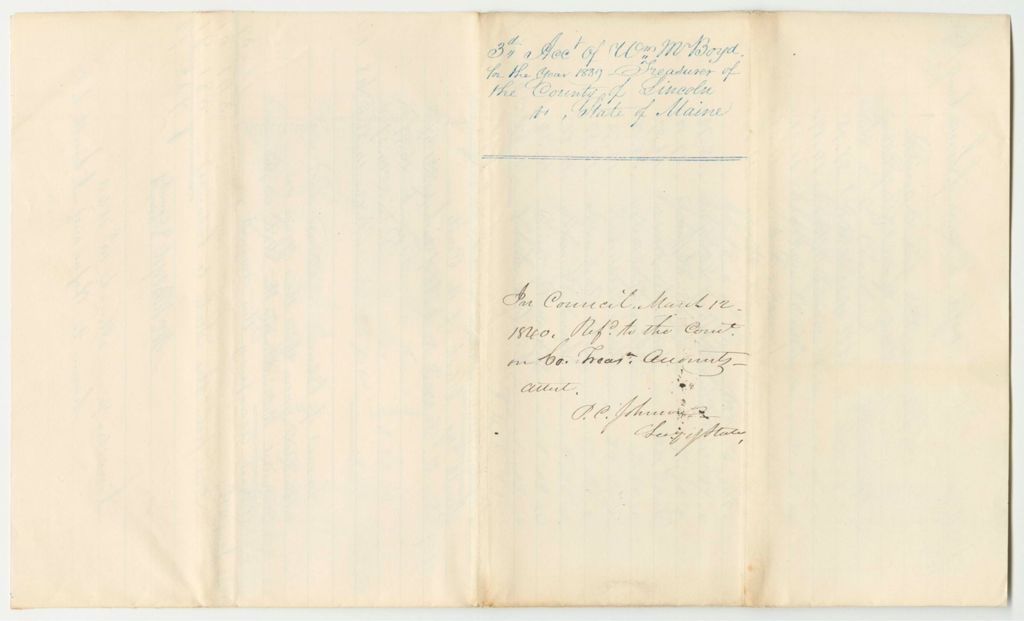 3d Acct of Wm M Boyd
for the Year 1839 Treasurer of
the County of Lincoln
vs. State of Maine
In Council, March 12
1840. Refd. to the Comt.
on Co. Treasr. Accounts
attest.
P. C. Johnson
Secy of State,